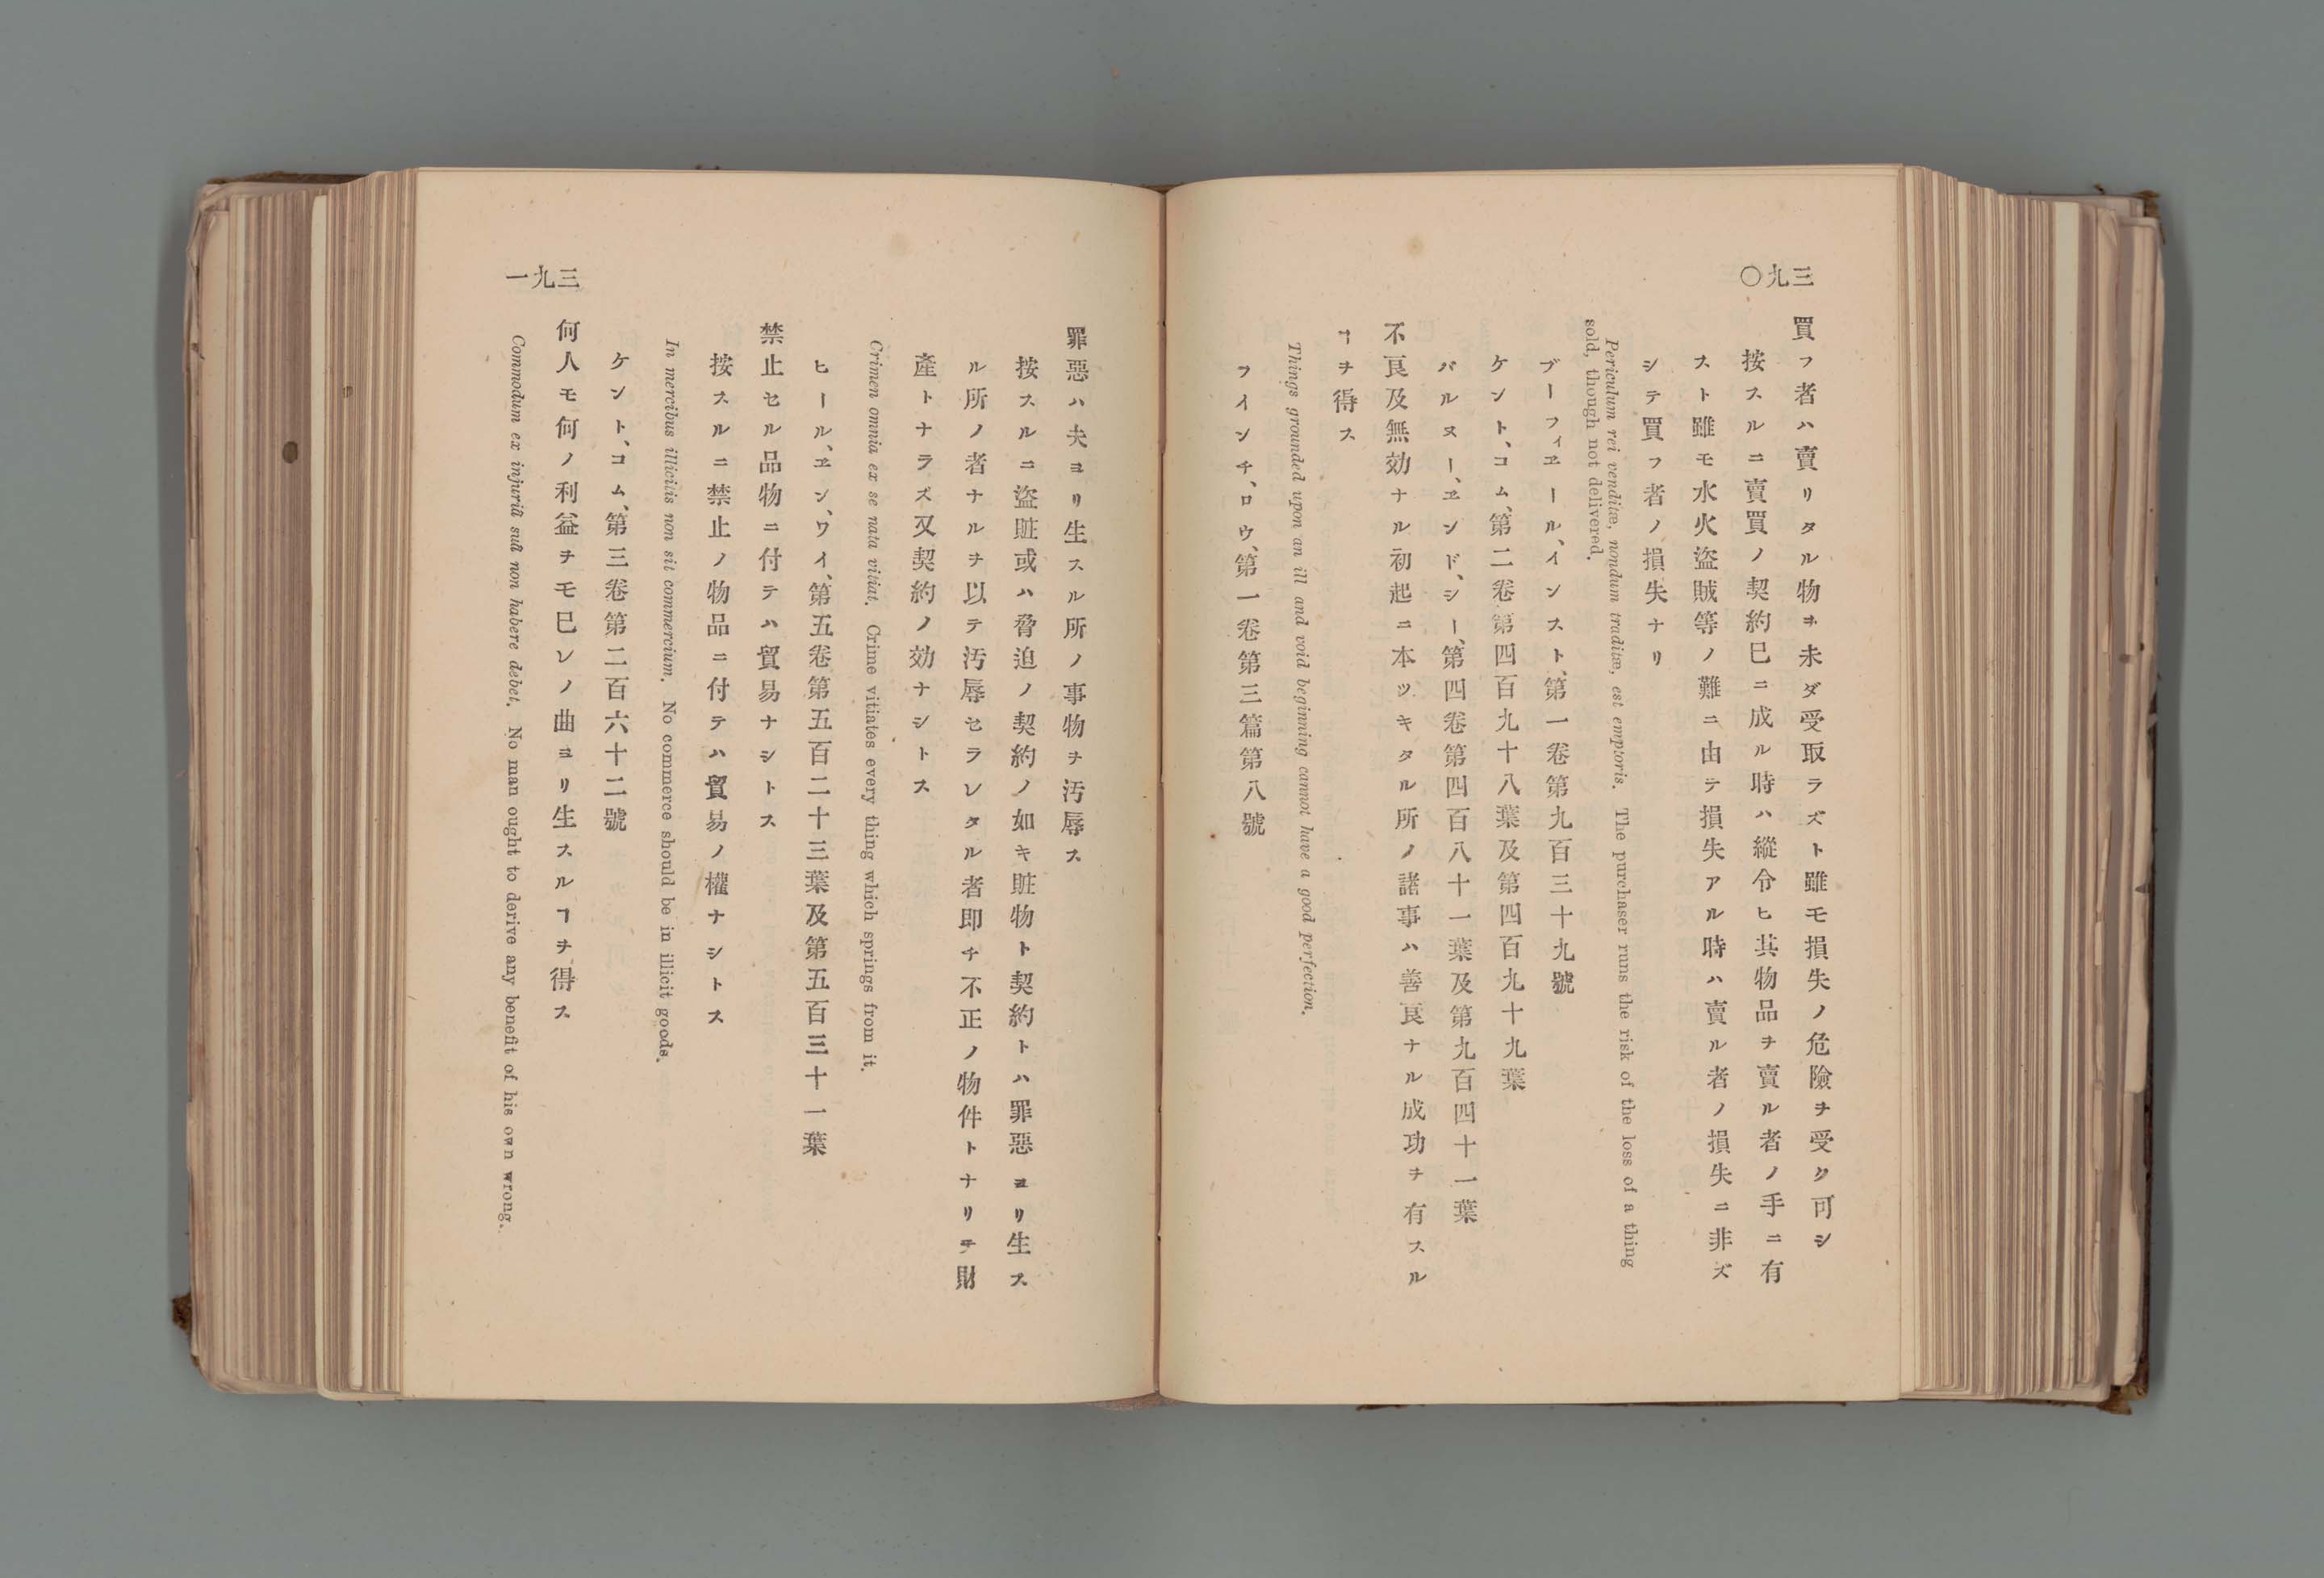 三九〇
買フ者ハ賣リタル物ヲ未ダ受取ラズト雖モ損失ノ危險ヲ受ク可シ
按スルニ賣買ノ契約巳ニ成ル時ハ縱令ヒ其物品ヲ賣ル者ノ手ニ有
スト雖モ水火盜賊等ノ難ニ由テ損失アル時ハ賣ル者ノ損失ニ非ズ
シテ買フ者ノ損失ナリ
Periculum rei venditæ, nondum traditæ, est emptoris. The purchaser runs the risk of the loss of a thing
sold, though not delivered.
ブーフィヱール、インスト、第一卷第九百三十九號
ケント、コム、第二卷第四百九十八葉及第四百九十九葉
バルヌー、ヱンド、シー、第四卷第四百八十一葉及第九百四十一葉
不良及無効ナル初起ニ本ツキタル所ノ諸事ハ善良ナル成功ヲ有スル
ヿヲ得ス
Things grounded upon an ill and void beginning cannot have a good perfection.
フインチ、ロウ、第一卷第三篇第八號
三九一
罪惡ハ夫ヨリ生スル所ノ事物ヲ汚辱ス
按スルニ盜賍或ハ脅迫ノ契約ノ如キ賍物ト契約トハ罪惡ヨリ生ス
ル所ノ者ナルヲ以テ汚辱セラレタル者即チ不正ノ物件トナリテ財
產トナラズ又契約ノ効ナシトス
Crimen omnia ex se nata vitiat. Crime vitiates every thing which springs from it.
ヒール、ヱン、ワイ、第五卷第五百二十三葉及第五百三十一葉
禁止セル品物ニ付テハ貿易ナシトス
按スルニ禁止ノ物品ニ付テハ貿易ノ權ナシトス
In mercibus illicitis non sit commercium. No commerce should be in illicit goods.
ケント、コム、第三卷第二百六十二號
何人モ何ノ利益ヲモ巳レノ曲ヨリ生スルヿヲ得ス
Commodum ex injuriâ suâ non habere debet. No man ought to derive any benefit of his own wrong.